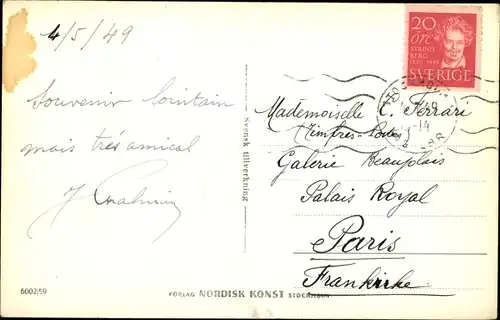 4/5/49
20
öre
STRIND
BERG
1849 1949
SVERIGE
Souvenir lointain
mais très amical
Mademoiselle C. Ferrari
Timbres-Poste
Galerie Beaujolais
Palais Royal
Paris
Frankrike
Svensk tillverkning
6002/59
FÖRLAG NORDISK KONST STOCKHOLM